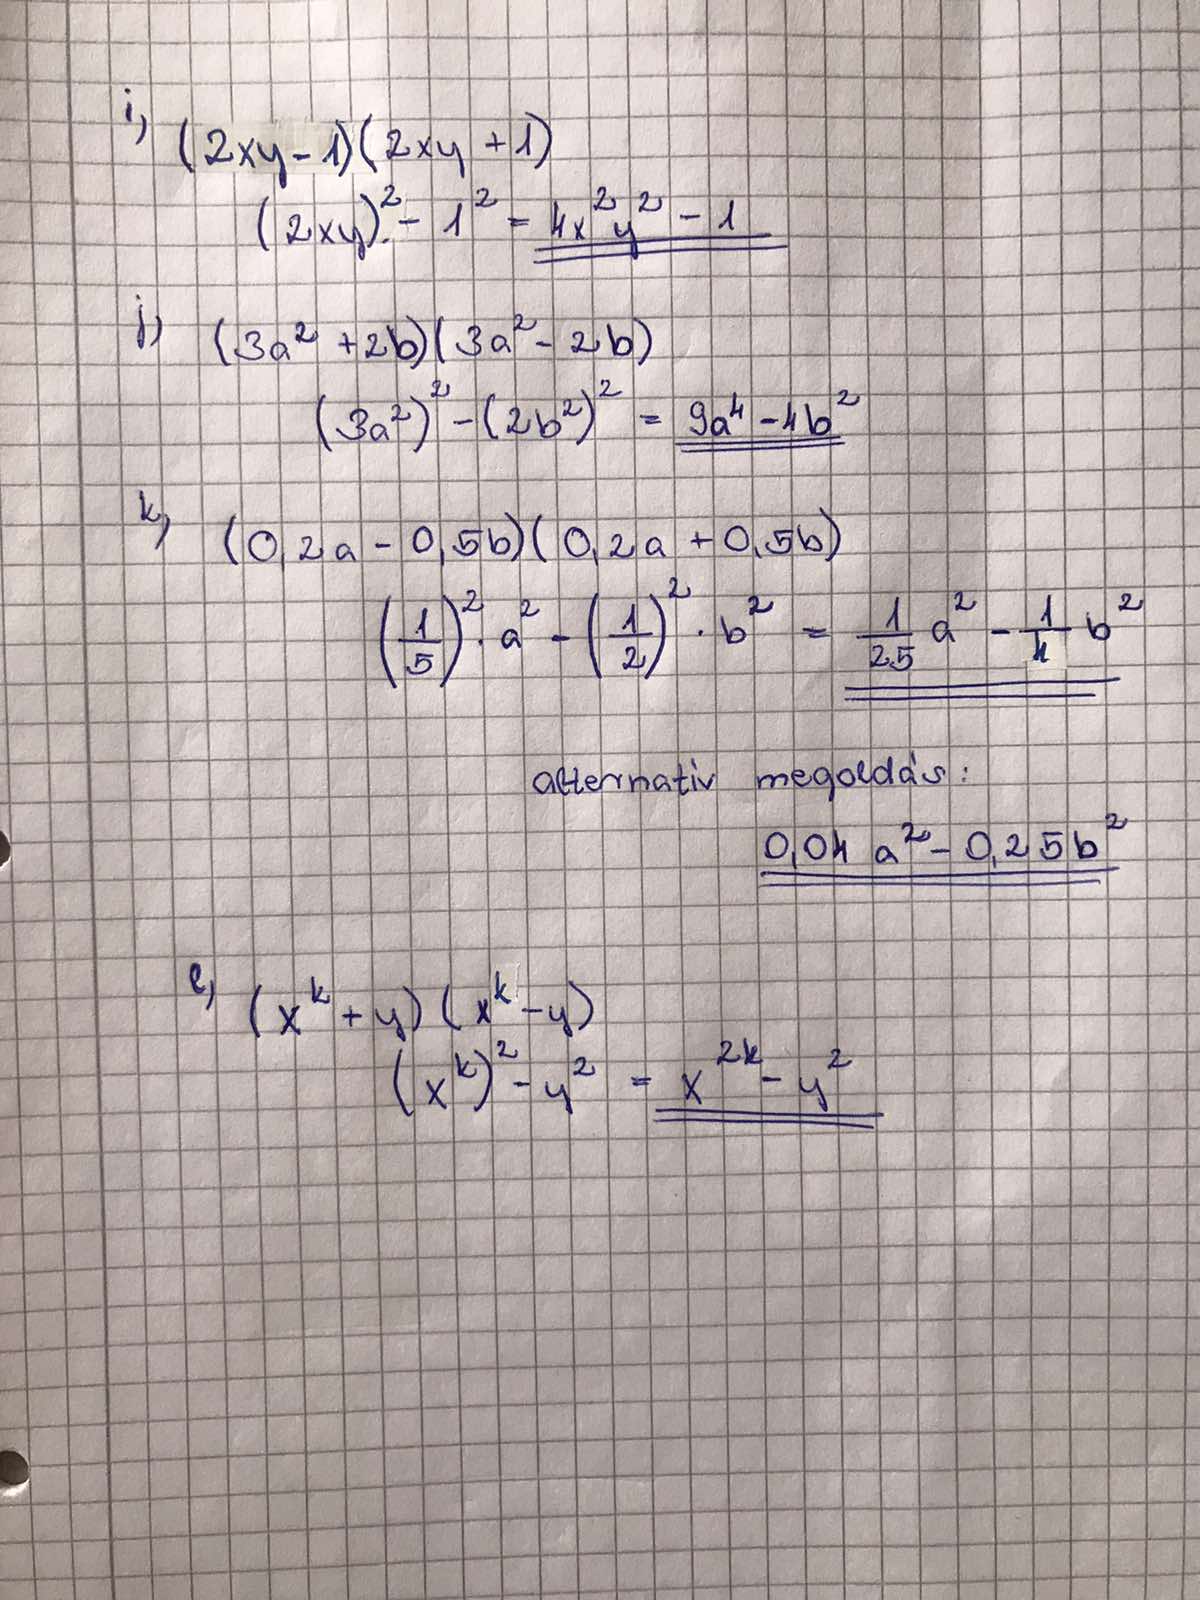 i, (2xy - 1)(2xy + 1)
(2xy)² - 1² = 4x²y² - 1
j, (3a² + 2b)(3a² - 2b)
(3a²)² - (2b²)² = 9a⁴ - 4b²
k, (0,2a - 0,5b)(0,2a + 0,5b)
(1/5)² · a² - (1/2)² · b² = 1/25 a² - 1/4 b²
alternativ megoldás:
0,04 a² - 0,25b²
l, (xᵏ + y)(xᵏ - y)
(xᵏ)² - y² = x²ᵏ - y²